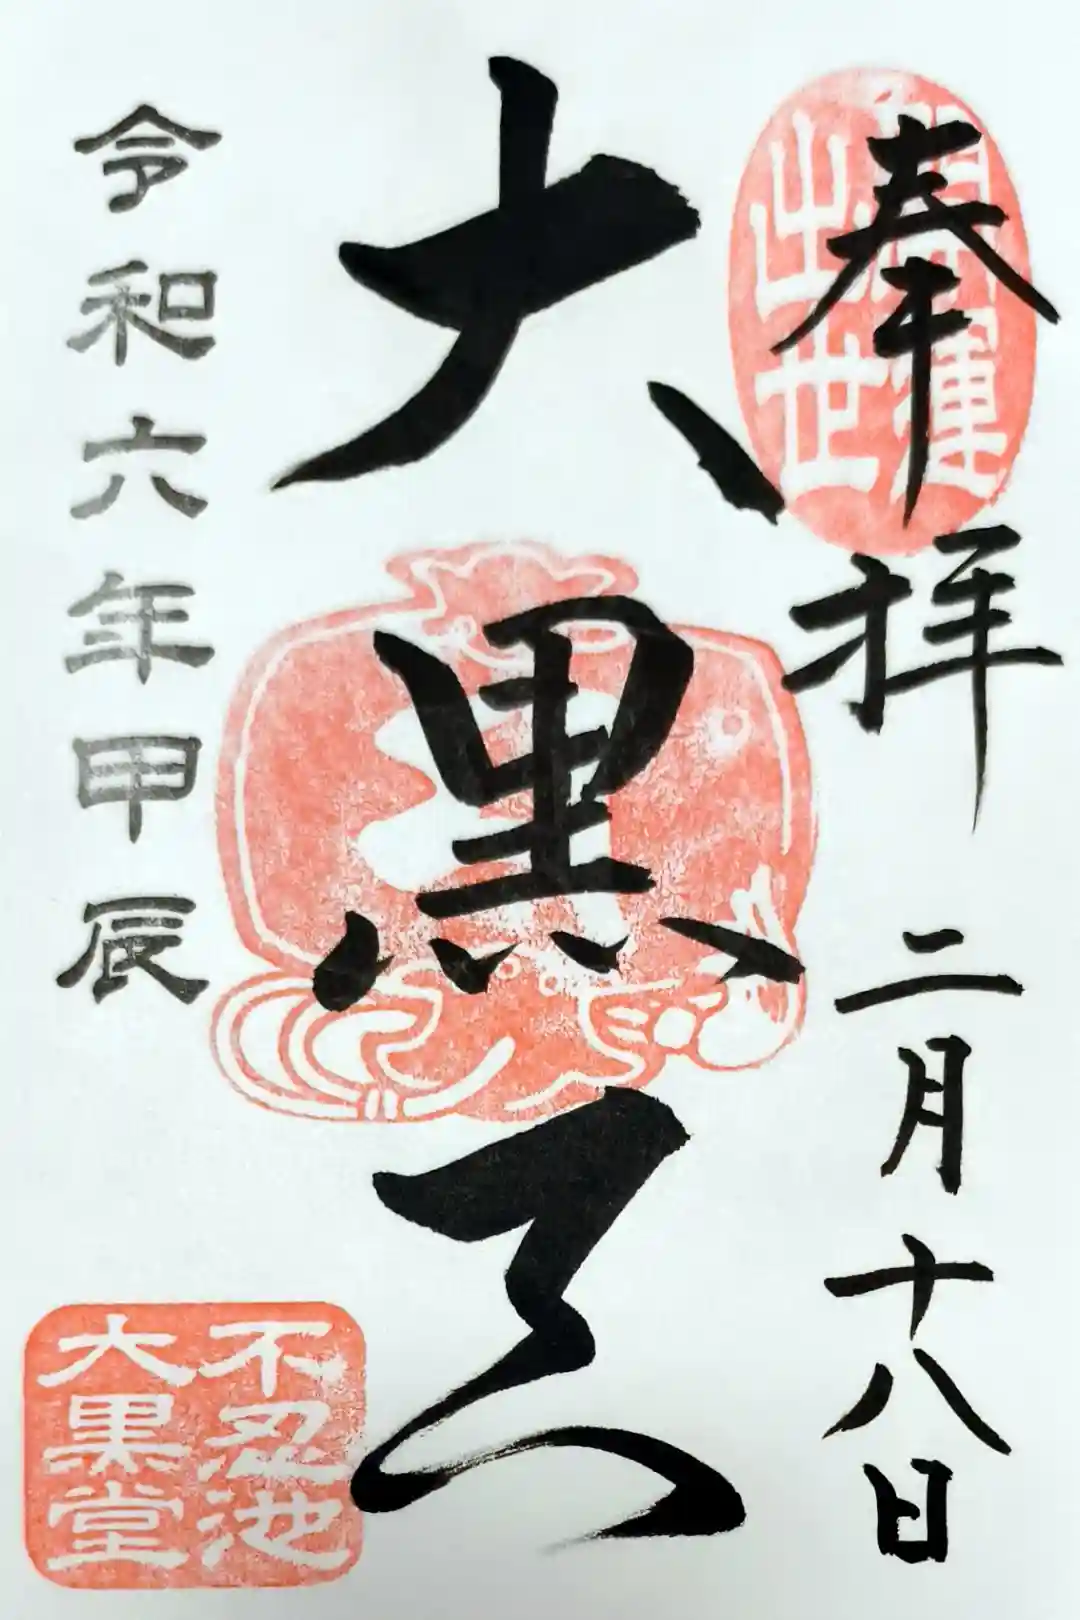 奉拝
二月十八日
開運
出世
大黒天
令和六年甲辰
不忍池
大黒堂